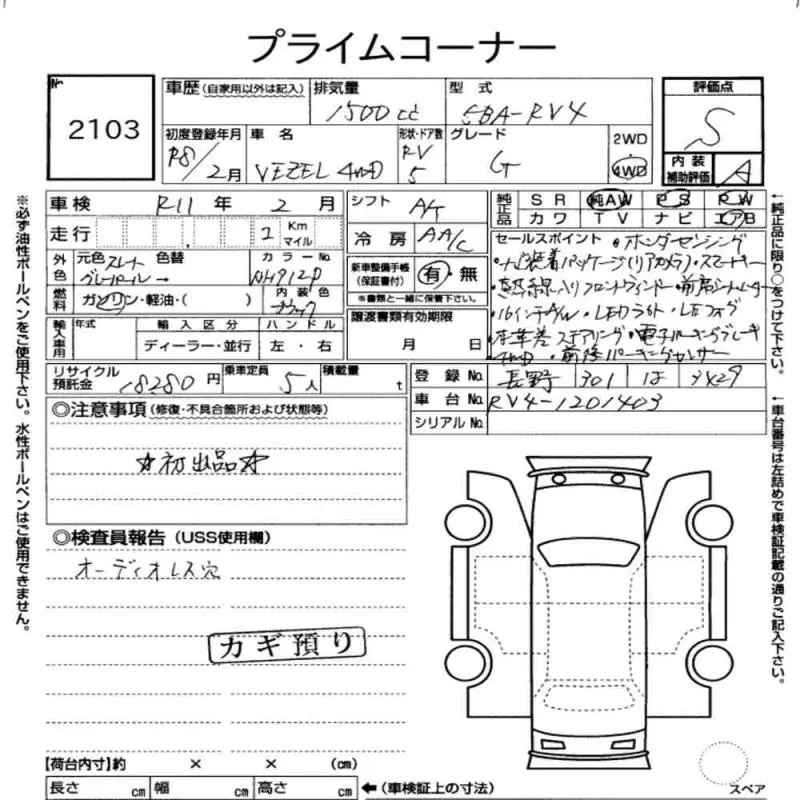 プライムコーナー
No
2103
車歴 (自家用以外は記入)
排気量
1500cc
型式
5BA-RV4
評価点
S
初度登録年月
R8/2月
車名
VEZEL 4WD
形状・ドア数
RV
5
グレード
G
2WD
4WD
内装
補助評価
A
車検 R11年 2月
シフト A/T
純正品 SR 純AW PS PW
カワ TV ナビ エアB
走行 2 Km
マイル
冷房 AA/C
セールスポイント ・ホンダセンシング
外色 元色 スレート
グレーパール
色替
カラーNo.
NH912P
新車整備手帳
(保証書付)
有・無
※書類と一緒に保管下さい。
・ナビ装着パッケージ(リアカメラ)・スマートキー
・熱線入りフロントウィンドー・前席シートヒーター
燃料 ガソリン・軽油・( )
内装色
ブラック
・16インチAW・LEDライト・LEDフォグ
輸入車用 年式
輸入区分
ディーラー・並行
ハンドル
左・右
譲渡書類有効期限
月 日
・本革巻ステアリング・電子パーキングブレーキ
・4WD・前後パーキングセンサー
リサイクル
預託金
18280円
乗車定員
5人
積載量
t
登録No. 長野 301 は 3429
車台No. RV4-1201403
シリアルNo.
◎注意事項 (修復・不具合個所および状態等)
☆初出品☆
◎検査員報告 (USS使用欄)
オーディオレス穴
カギ預り
【荷台内寸】約 × × (cm)
長さ cm 幅 cm 高さ cm
←(車検証上の寸法)
スペア
※必ず油性ボールペンをご使用下さい。水性ボールペンはご使用できません。
←純正品に限り○をつけて下さい。
←車台番号は左詰めで車検証記載の通りご記入下さい。